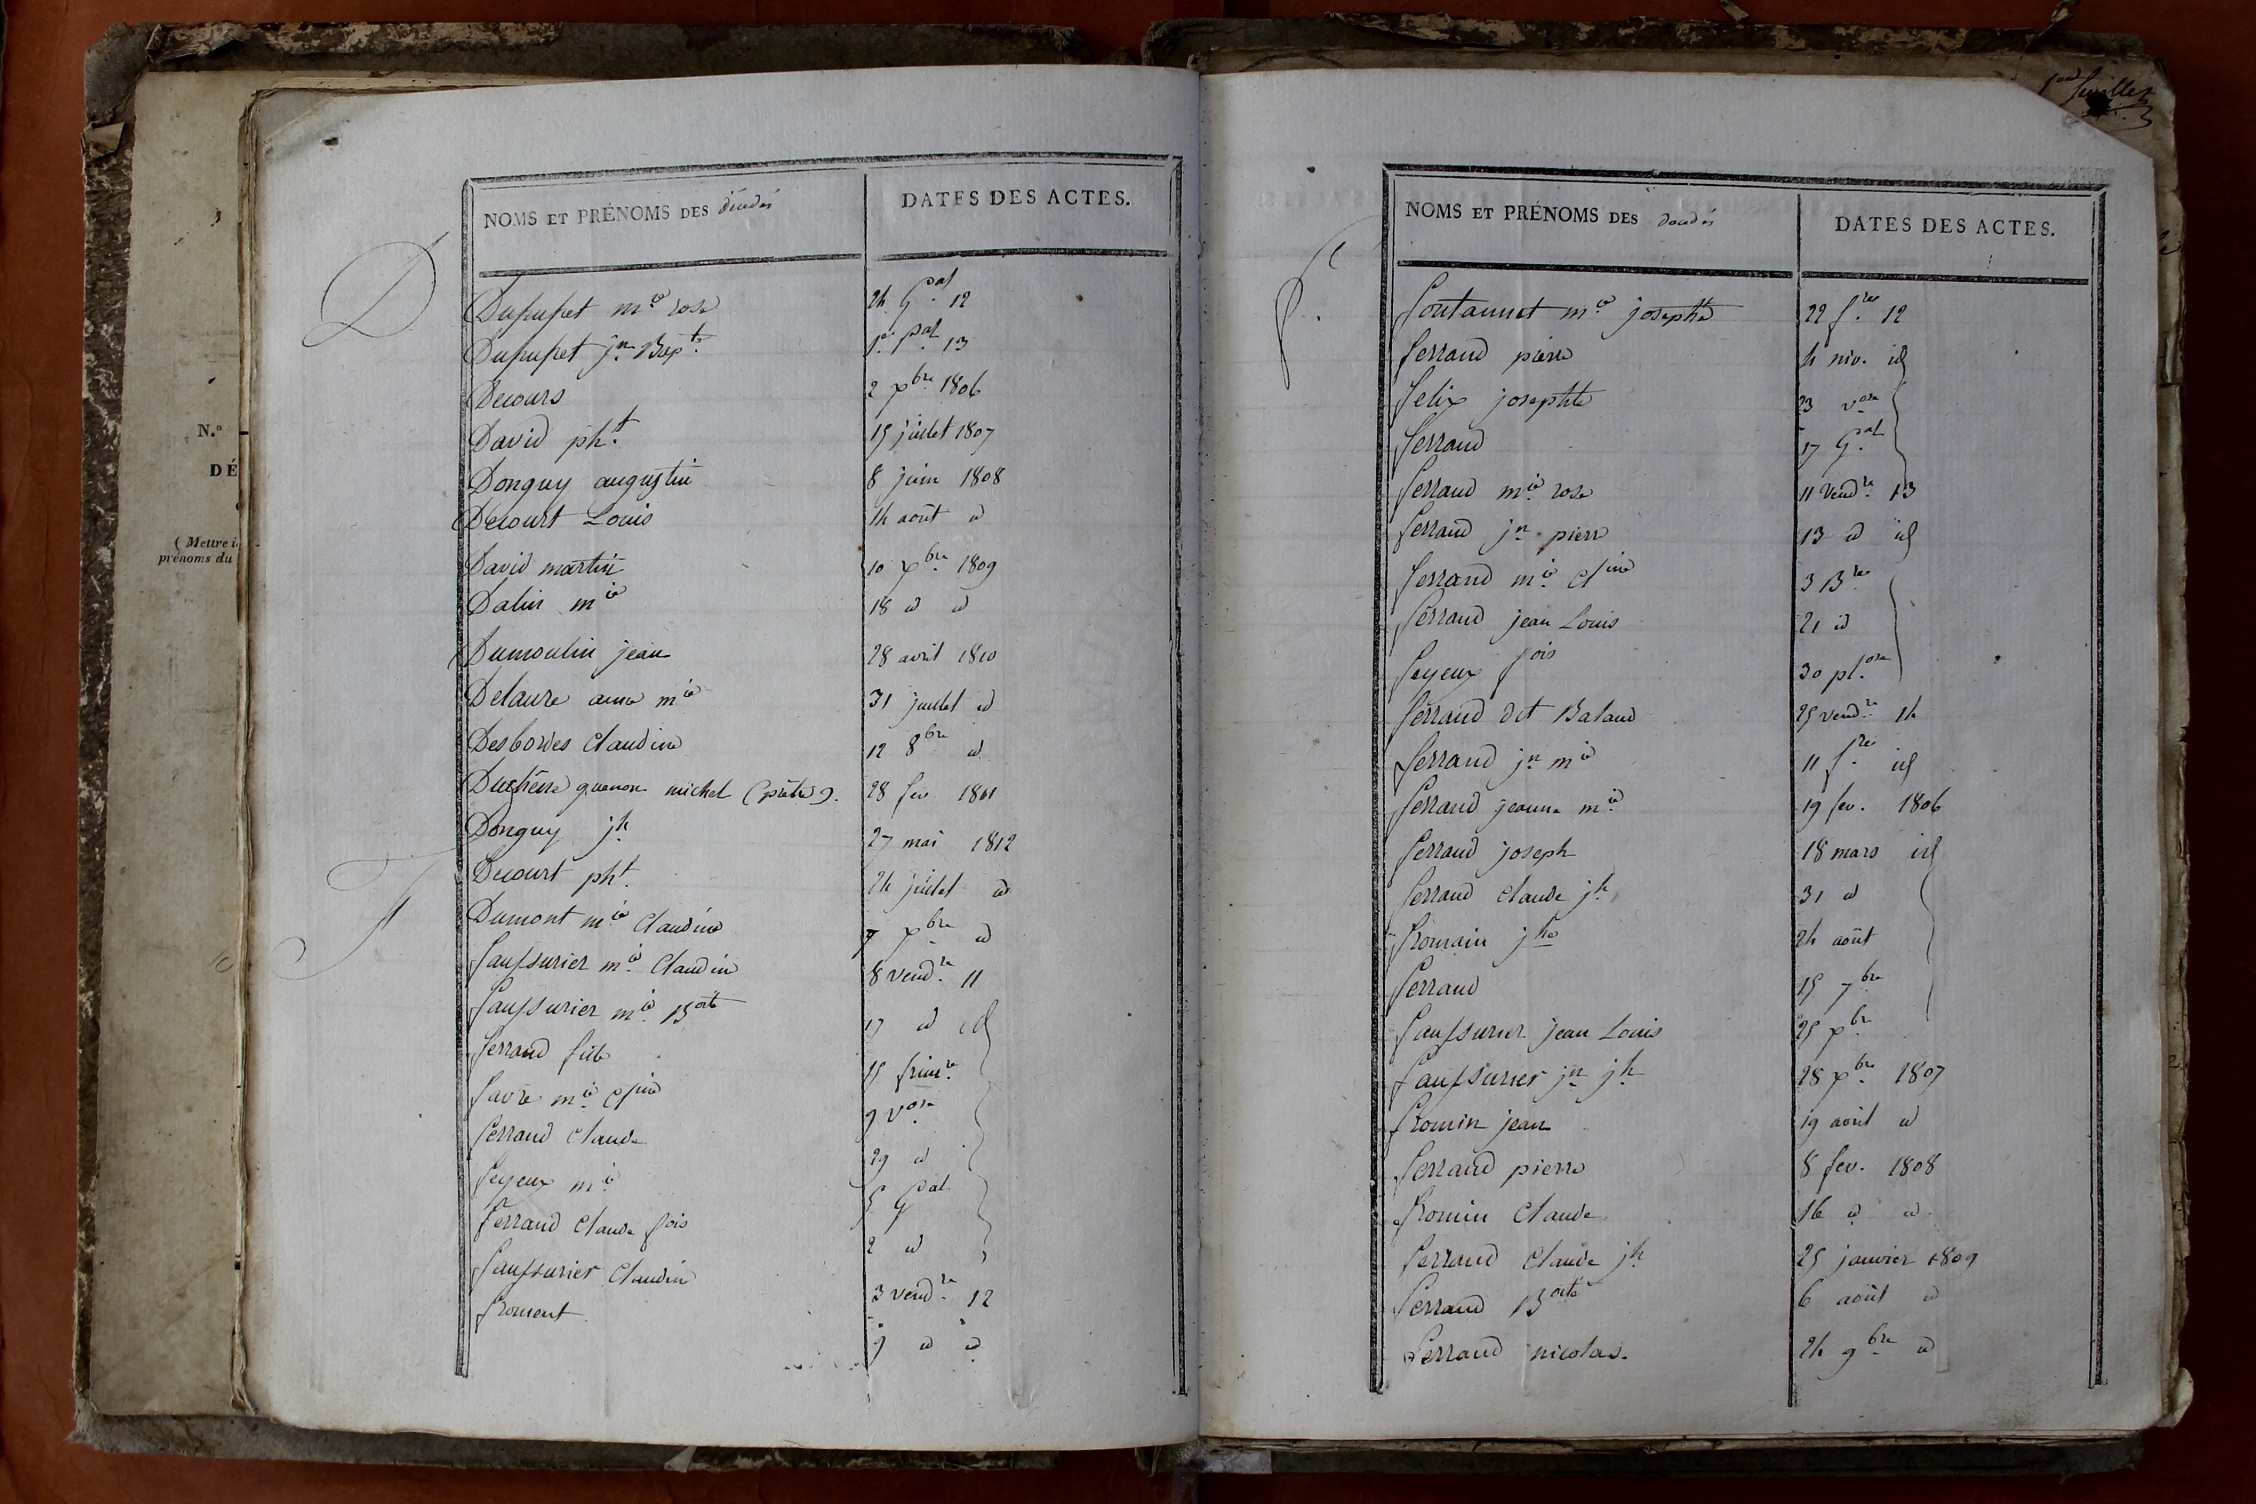 N.º
DÉ
( Mettre i
prénoms du
NOMS ET PRÉNOMS DES décedés
DATES DES ACTES.
D
Dupupet m.ie rose 24 G.nal 12
Dupupet j.n Bap.te 1.er P.al 13
Decours 2 xbre 1806
David ph.t 15 juillet 1807
Donguy augustin 8 juin 1808
Decourt Louis 14 août id
David martin 10 xbre 1809
Dalin m.ie 18 id id
Dumoulin jean 28 avril 1810
Delaure anne m.ie 31 juillet id
Desbordes Claudine 12 8bre id
michel (prêtre). 28 fev 1811
Donguy j.h 27 mai 1812
Decourt ph.t 24 juillet id
Dumont m.ie Claudine 7 xbre id
F
faussurier m.ie Claudine 8 vend.re 11
faussurier m.ie B.oite 17 id id
ferrand fille 15 frim.re
favre m.ie 9 v.ose
ferrand Claude 29 id
feyeux m.ie 5 G.nal
ferrand Claude f.ois 2 id
faussurier Claudine 3 vend.re 12
froment 9 id id
1er feuillet
NOMS ET PRÉNOMS DES décedés
DATES DES ACTES.
f.
fontannet m.ie josephte 22 f.re 12
ferrand pierre 4 niv. id
felix josephte 23 v.ose
ferrand 17 G.nal
ferrand m.ie rose 11 vend.re 13
ferrand j.n pierre 13 id id
ferrand m.ie 3 B.re
ferrand jean Louis 21 id
feyeux f.ois 30 pl.ose
ferrand dit Baland 25 vend.re 14
ferrand j.n m.ie 11 f.re id
ferrand jeanne m.ie 19 fev. 1806
ferrand joseph 18 mars id
ferrand Claude j.h 31 id
fromain j.te 24 août
ferrand 15 7bre
faussurier jean Louis 25 xbre
faussurier j.n j.h 28 xbre 1807
fromin jean 19 août id
ferrand pierre 8 fev. 1808
fromin Claude 16 id id
ferrand Claude j.h 25 janvier 1809
ferrand B.oite 6 août id
ferrand nicolas. 24 9bre id